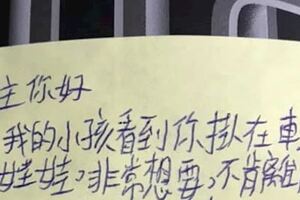 主你好
我的小孩看到你掛在車
娃娃,非常想要,不肯離